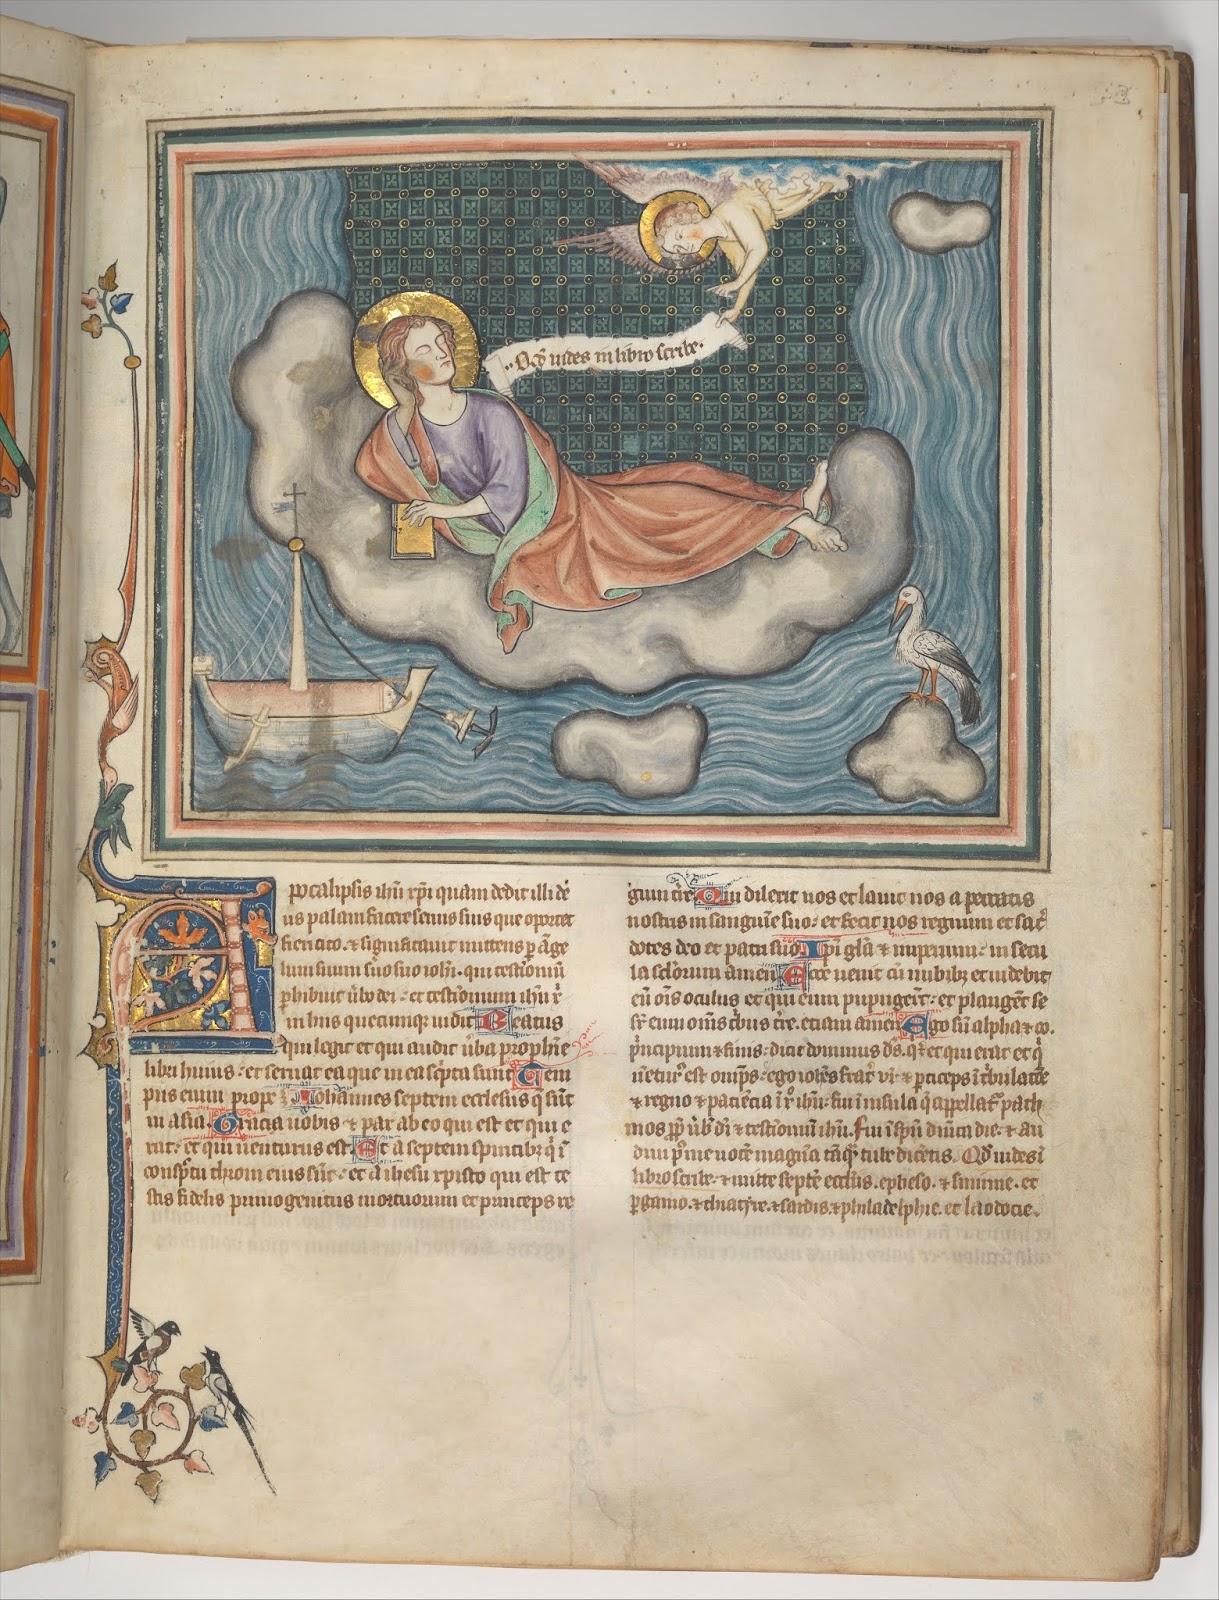 Qd̄ uides in libro scribe.
Apocalipsis ihū xp̄i quam dedit illi de
us palam facere seruis suis que oportet
fieri cito. ⁊ significauit mittens p̄ āge
lum suum s̄uo suo ioh̄i. qui testimoniū
phibuit ūbo dei: et testimonium ihū x̄
in hiis quecumq; uidit Beatus
qui legit et qui audit ūba prophīe
libri huius: et seruat ea que in ea sc̄pta sunt Tem
pus enim prope ē Iohannes septem ecclesiis q̄ sūt
in asia. Gracia uobis ⁊ pax ab eo qui est et qui e
rat: et qui uenturus est. Et a septem spiritibꝫ q̄ ī
consp̄tu throni eius sūt: et a ihesu xpisto qui est te
stis fidelis primogenitus mortuorum et princeps re
gum t̄re Qui dilexit nos et lauit nos a peccatis
nostris in sanguīe suo: et fecit nos regnum et sac̄
dotes deo et patri suo Ipi gl̄a ⁊ imperium: in secu
la scl̄orum amen Ecce uenit cū nubibꝫ et uidebit
eū oīs oculus et qui eum pupugeīt: et plangēt se
sr̄ eum omīs t̄bus t̄re. etiam amen Ego sū alpha ⁊ ω.
p̄ncipium ⁊ finis: dicit dominus d̄s. q̄ est qui erat et q̄
uētur᷒ est omp̄s. ego ioh̄es frat̄ vr̄ ⁊ p̄ticeps ī t̄bulatōe
⁊ regno ⁊ paciencia ī x̄ ihū: fui ī insula q̄ appellat̄ path
mos pp̄ ūb̄ dī ⁊ testīoniū ihū. Fui ī sp̄u dn̄ica die: ⁊ au
diui p᷒ me uocē magnā tāq̄ tube dicētis. Qd̄ uides ī
libro scribe: ⁊ mitte septē eccl̄iis. epheso. ⁊ smirne. et
p̄gamo. ⁊ thiatyre. ⁊ sardis. ⁊ philadelphie. et laodocie.